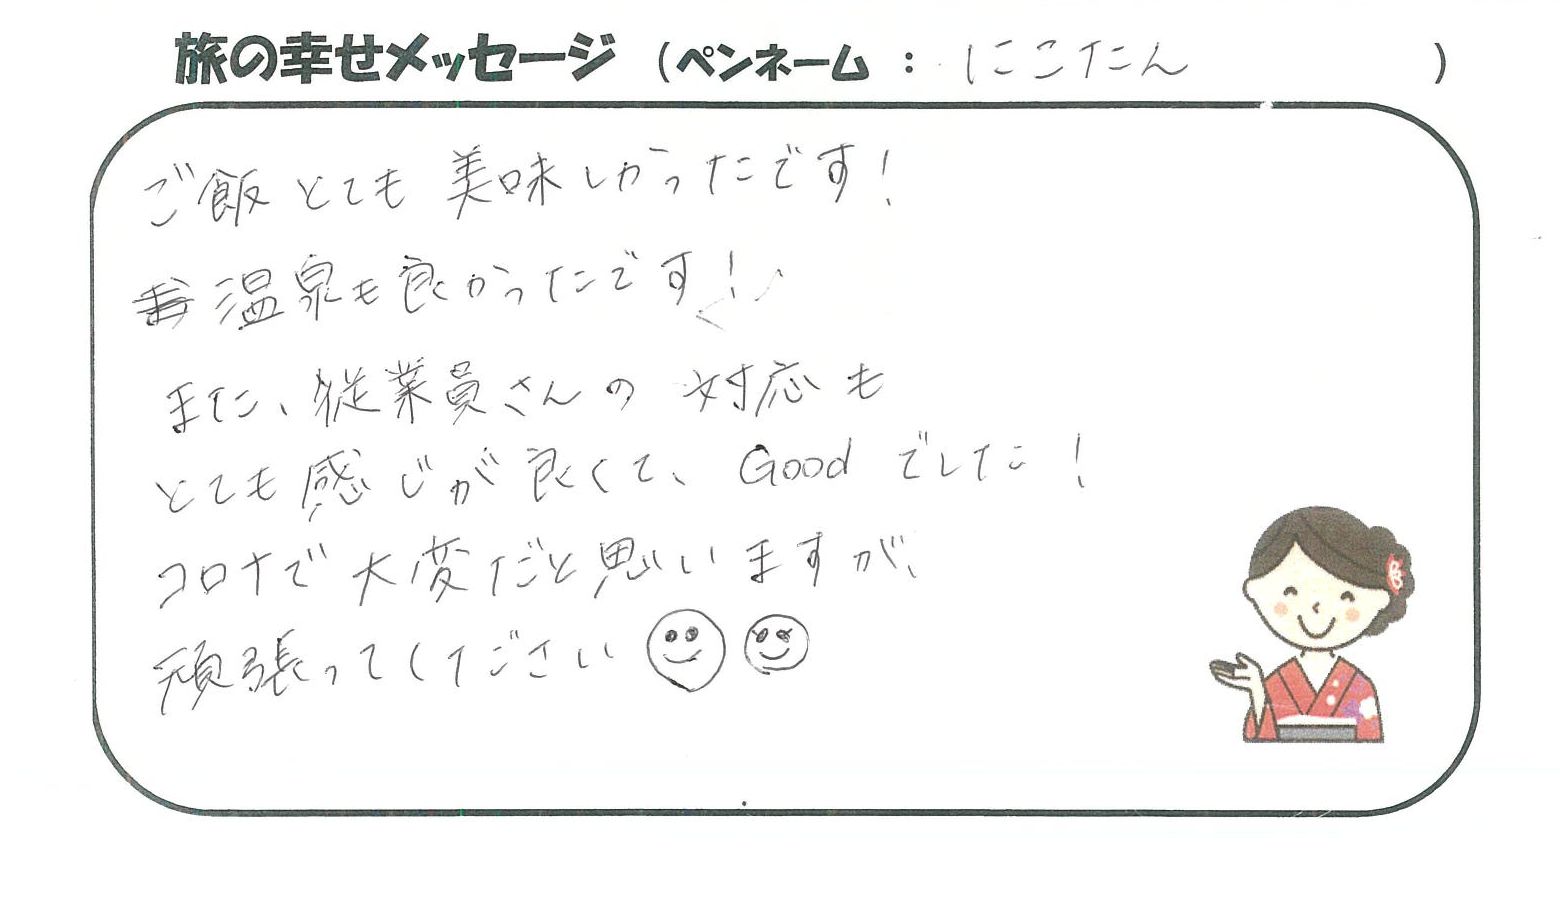 旅の幸せメッセージ (ペンネーム : にこたん )
ご飯とても美味しかったです!
温泉も良かったです!
また、従業員さんの対応も
とても感じが良くて、Goodでした!
コロナで大変だと思いますが、
頑張ってください